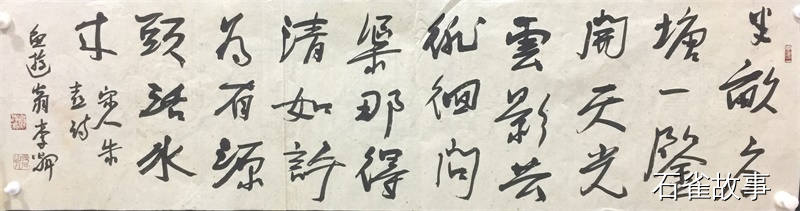 半畝方
塘一鑒
開天光
雲影共
徘徊問
渠那得
清如許
為有源
頭活水
來
宋人朱
熹詩
遊翁李
石雀故事